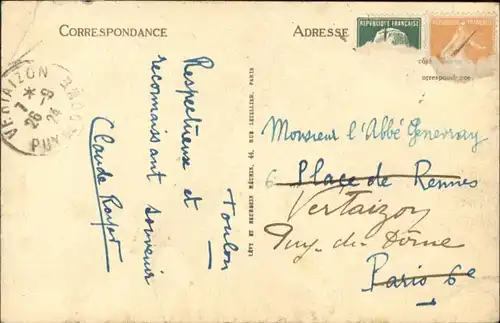 CORRESPONDANCE
ADRESSE
RÉPUBLIQUE FRANÇAISE
RÉPUBLIQUE FRANÇAISE
orrespondance.
VERTAIZON
PUY DE DOME
7 * 8
26 24
Toulon
Respectueux et
reconnaissant souvenir
Claude Royer
LÉVY ET NEURDEIN RÉUNIS, 44, RUE LETELLIER, PARIS
Monsieur l'Abbé Genevray
6 Place de Rennes
Vertaizon
Puy-du-Dôme
Paris 6e